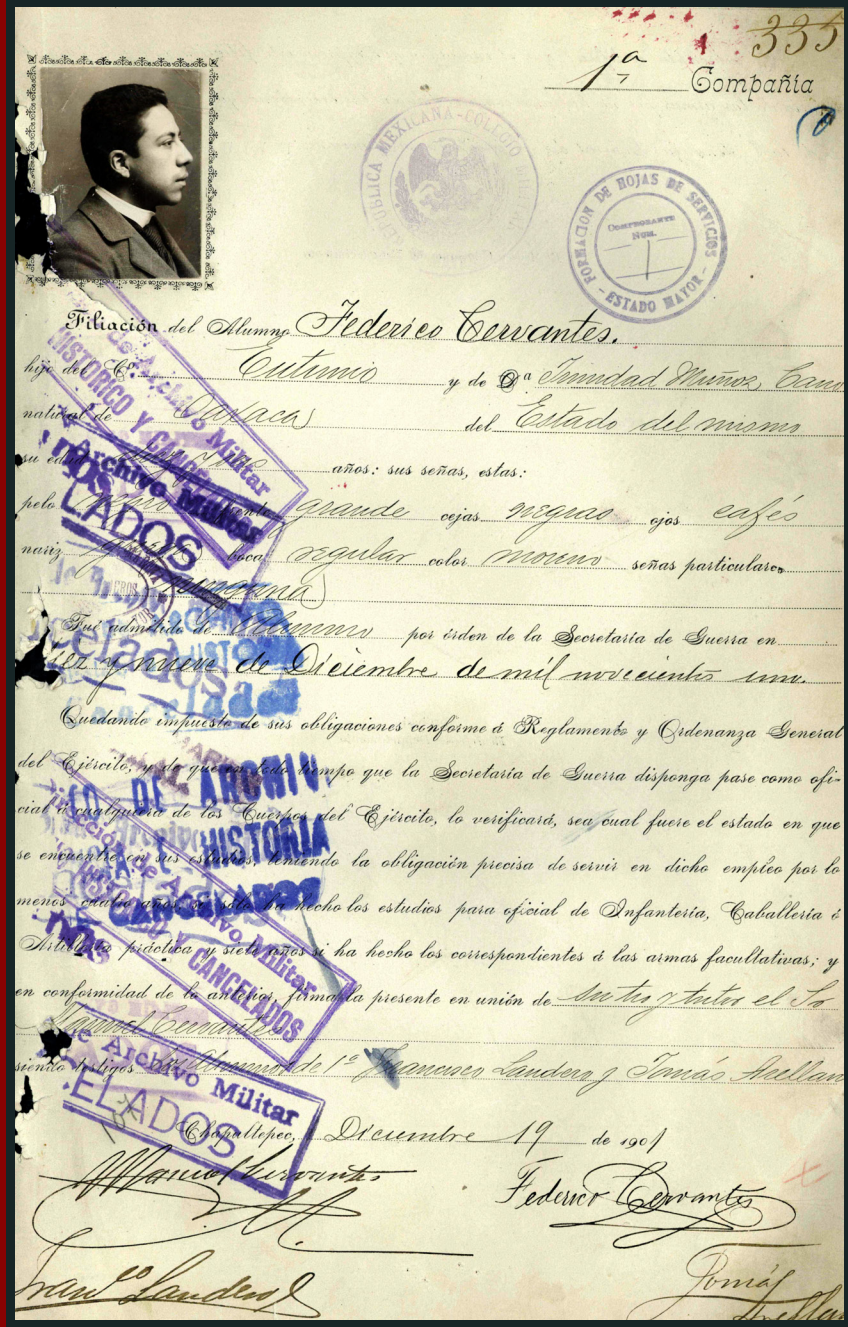 335
1ª Compañía
REPUBLICA MEXICANA - COLEGIO MILITAR
FORMACION DE HOJAS DE SERVICIOS
COMPROBANTE
NUM.
- ESTADO MAYOR -
Filiación del Alumno Federico Cervantes.
hijo del Cº. Eutimio y de Dª Trinidad Muñoz Cano
natural de Oaxaca del Estado del mismo
su edad años: sus señas, estas:
pelo negro frente grande cejas negras ojos cafés
nariz boca regular color moreno señas particulares
ninguna
Fué admitido de Alumno por órden de la Secretaría de Guerra en
diez y nueve de Diciembre de mil novecientos uno.
Quedando impuesto de sus obligaciones conforme á Reglamento y Ordenanza General
del Ejército, y de que en todo tiempo que la Secretaría de Guerra disponga pase como ofi-
cial á cualquiera de los Cuerpos del Ejército, lo verificará, sea cual fuere el estado en que
se encuentre en sus estudios, teniendo la obligación precisa de servir en dicho empleo por lo
menos cuatro años, si sólo ha hecho los estudios para oficial de Infantería, Caballería ó
Artillería práctica y siete años si ha hecho los correspondientes á las armas facultativas; y
en conformidad de lo anterior, firma la presente en unión de su tio y tutor el Sr
Manuel Cervantes
siendo testigos de 1ª Francisco Landero y Tomás Arellan
Chapultepec, Diciembre 19 de 1901
Manuel Cervantes
Federico Cervantes
Franco Landero
Tomás
Arellan
HISTORICO Y CANCELADOS
Archivo Militar
LADOS
DE ARCHIVO
HISTORIA
CANCELADOS
Archivo Militar
CANCELADOS
de Archivo Militar
ELADOS